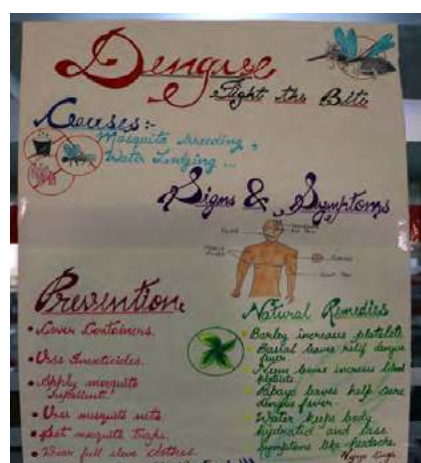 Dengue
Fight the Bite
Causes:-
Mosquito breeding,
Water Lodging ...
Signs & Symptoms
Prevention
• Cover Containers.
• Use Insecticides.
• Apply mosquito
repellent.
• Use mosquito nets.
• Set mosquito traps.
• Wear full sleve clothes.
Natural Remedies
Barley increase platelets.
leaves relif dengue
fever.
Neem leaves increses blood
platelets.
Papaya leaves help cure
dengue fever.
Water keeps body
hydrated and ease
symptoms like headache.